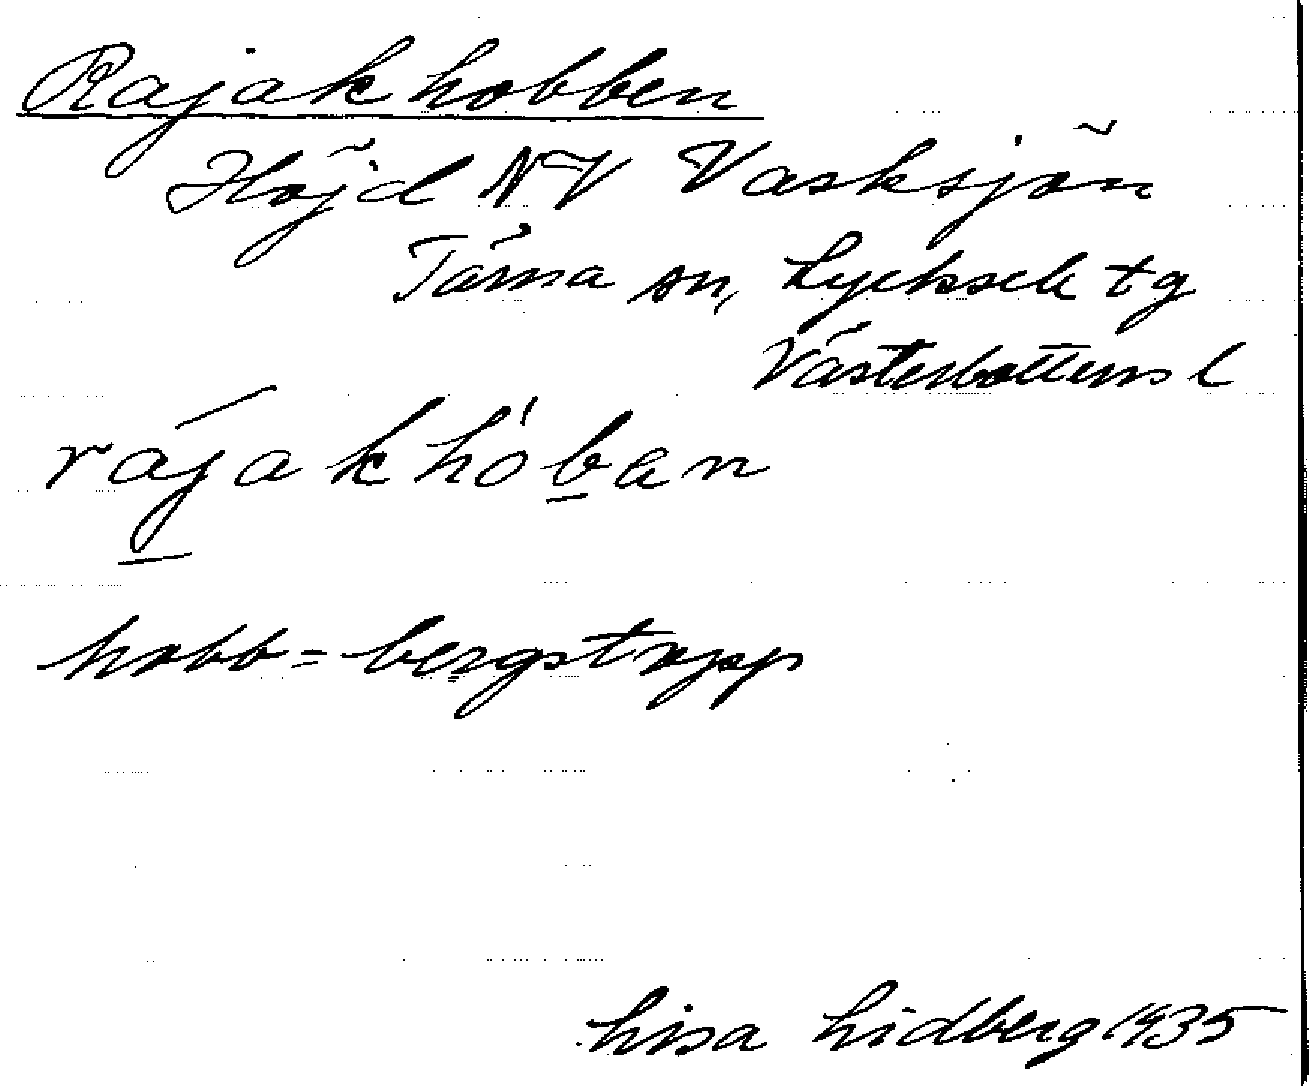 Rajakhobben
Höjd NV Vasksjön
Tärna sn, Lycksele tg
Västerbottens l
rájakhób̲an
hobb = bergstopp
Lisa Lidberg 1935